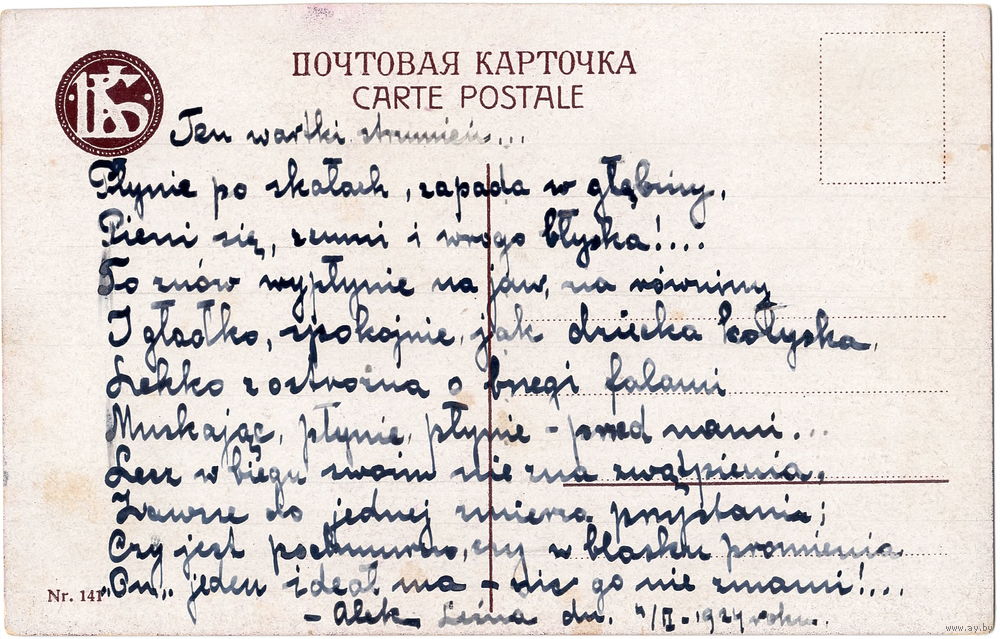 ПОЧТОВАЯ КАРТОЧКА
CARTE POSTALE
Ten wartki strumień...
Płynie po skałach, zapada w głębiny,
Pieni się, szumi i wrogo błyska!....
To znów wypłynie na jaw, na równiny
I gładko, spokojnie, jak dziecka kołyska,
Lekko z ostrożna o brzegi falami
Muskając, płynie, płynie - przed nami...
Lecz w biegu swoim nie zna zwątpienia,
Zawsze do jednej zmierza przystani;
Czy jest pochmurno, czy w blasku promienia
"On" jeden ideał ma - nic go nie zmami!...
Nr. 141
- Alek Leśna dn. /II - 1924 roku.
www.ay.by